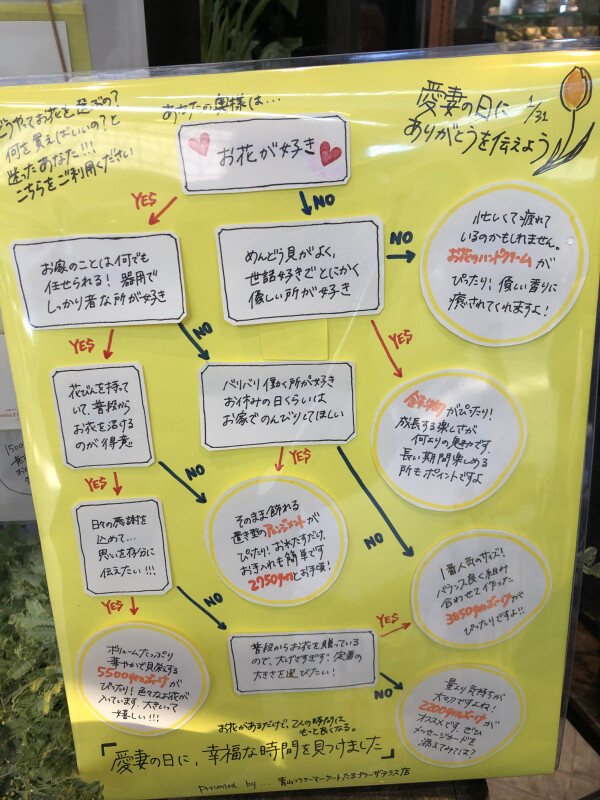 どうやってお花を選ぶの？
何を買えばいいの？と
迷ったあなた!!!
こちらをご利用ください
あなたの奥様は...
愛妻の日に 1/31
ありがとうを伝えよう
お花が好き
YES
NO
お家のことは何でも
任せられる！器用で
しっかり者な所が好き
めんどう見がよく、
世話好きでとにかく
優しい所が好き
NO
忙しくて疲れて
いるのかもしれません。
お花のハンドクリームが
ぴったり！優しい香りに
癒されてくれますよ！
YES
NO
YES
花びんを持って
いて、普段から
お花を活ける
のが得意
バリバリ働く所が好き
お休みの日くらいは
お家でのんびりしてほしい
鉢物がぴったり！
成長する楽しさが
何よりの魅力です。
長い期間楽しめる
所もポイントですよ
YES
NO
YES
NO
日々の感謝を
込めて...
思いを存分に
伝えたい!!!
そのまま飾れる
置き型のアレンジメントが
ぴったり！お水たすだけ。
お手入れも簡単です
2750yenとお手頃！
1番人気のサイズ！
バランス良く組み
合わせて作った
3850yenブーケが
ぴったりですよ!!
YES
NO
YES
ボリュームたっぷり
華やかで見栄する
5500yenブーケが
ぴったり！色々なお花が
入っています。大きいって
嬉しい!!!
普段からお花を贈っている
ので、大げさすぎず！定番の
大きさを選びたい！
NO
量より気持ちが
大切ですよね！
2200yenブーケが
オススメです。ぜひ
メッセージカードを
添えてみては？
お花があるだけで、2人の時間は
もっと良くなる。
「愛妻の日に、幸福な時間を見つけました」
Presented by... 青山フラワーマーケットたまプラーザテラス店
1500